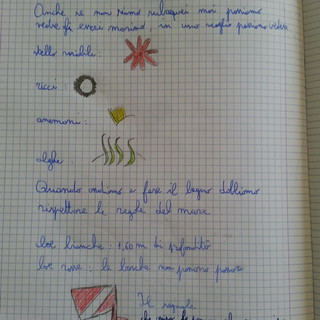 Anche se non siamo subacquei noi possiamo
vedere gli esseri marini in uno scoglio possiamo vedere
stelle marine:
ricci:
anemoni:
alghe:
Quando andiamo a fare il bagno dobbiamo
rispettare le regole del mare.
boe bianche: 1,60 m di profondità
boe rosse: le barche non possono passare
Il segnale